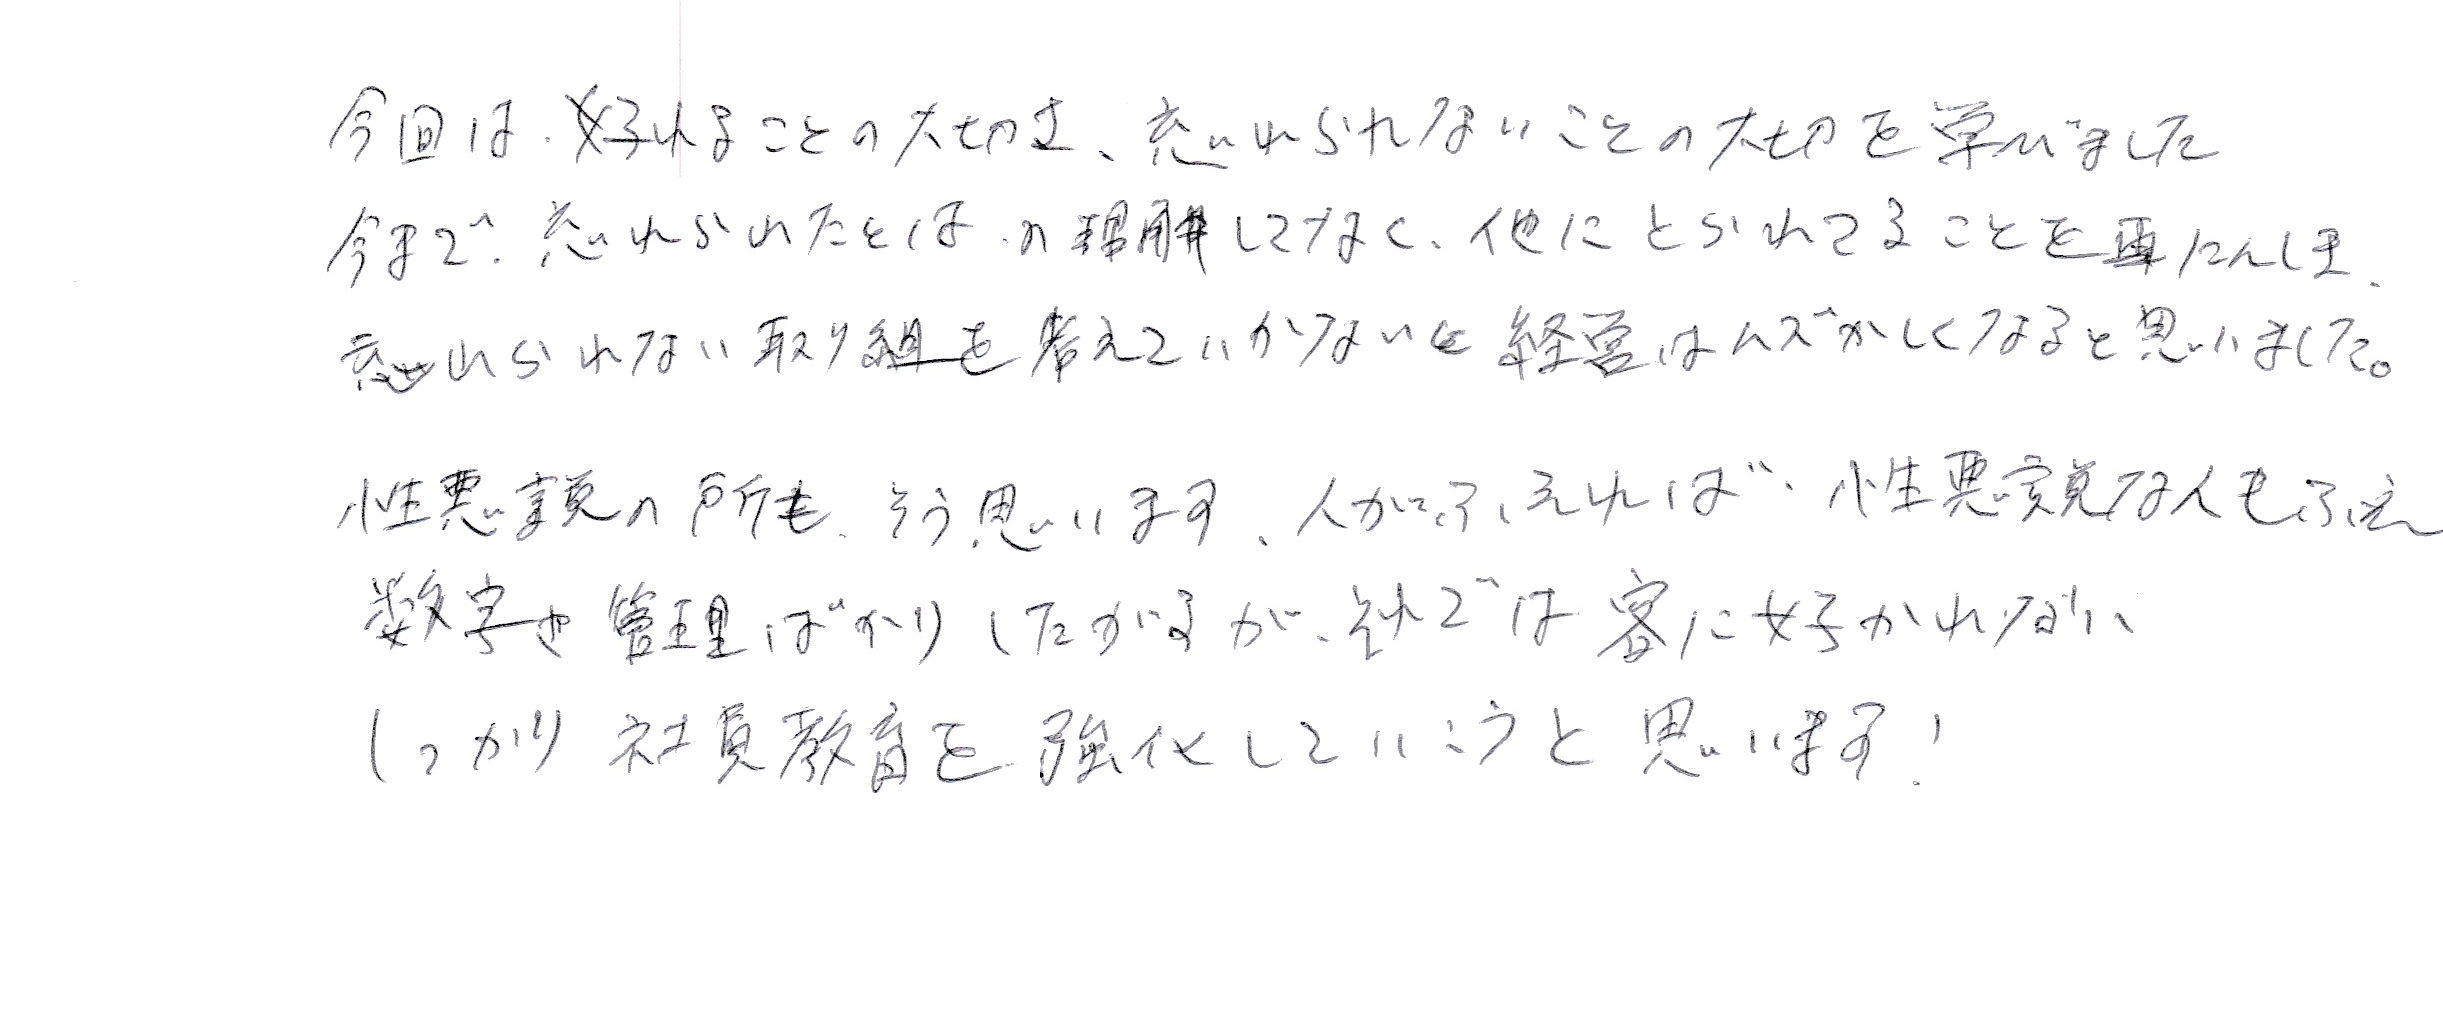 今回は、好れることの大切さ、忘れられないことの大切を学びました
今まで、忘れられたとは の理解してなく、他にとられてることを再にんしき、
忘れられない取り組を考えていかないと経営はムズかしくなると思いました。
性悪説の所も、そう思います、人がふえれば、性悪説な人もふえ
数字や管理ばかりしたがるが、それでは客に好かれない、
しっかり社員教育を強化していこうと思います!